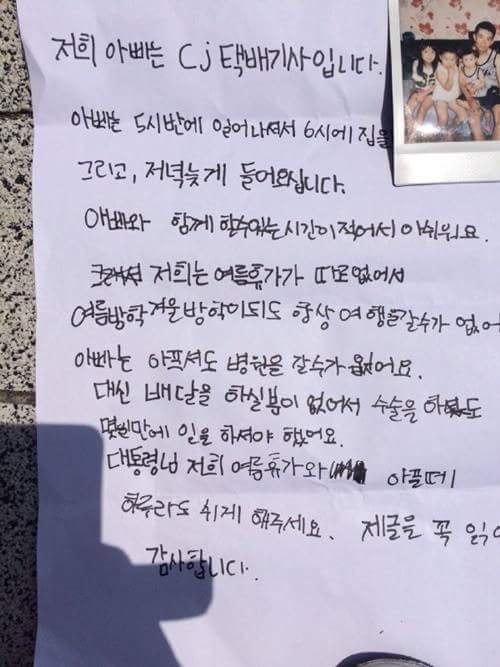 저희 아빠는 Cj 택배기사입니다.
아빠는 5시반에 일어나셔서 6시에 집을
그리고, 저녁늦게 들어오십니다.
아빠와 함께 할수있는시간이적어서 아쉬워요.
저희는 여름휴가가 따로없어서
여름방학겨울방학이되도 항상 여행을갈수가 없어
아빠는 아프셔도 병원을 갈수가 없어요.
대신 배달을 하실분이 없어서 수술을 하셨도
몇일만에 일을 하셔야 했어요.
대통령님 저희 여름휴가와 아플떼
하루라도 쉬게 해주세요. 제글을 꼭 읽어
감사합니다.